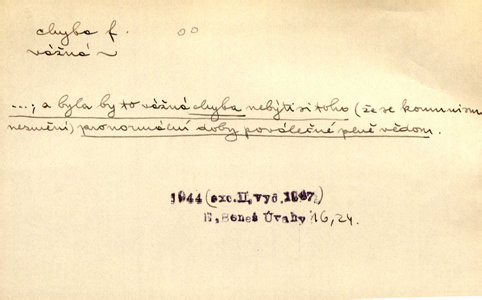 chyba f. oo
vážná ~
...; a byla by to vážná chyba nebýti si toho (že se komunism
nezmění) pro normální doby poválečné plně vědom.
1944 (exc. II, vyd. 1947)
E. Beneš Úvahy 16, 24.